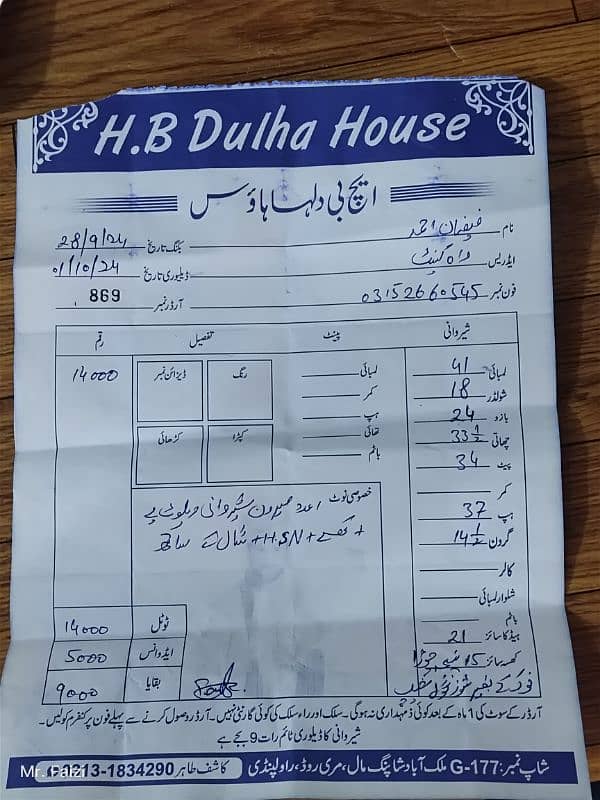 H.B Dulha House
ایچ بی دلہا ہاؤس
نام
احمد
بکنگ تاریخ 28/9/24
ایڈریس واہ کینٹ
ڈیلیوری تاریخ 01/10/24
فون نمبر 03152660545
آرڈر نمبر 869
شیروانی
پینٹ
تفصیل
رقم
لمبائی 41
شولڈر 18
بازو 24
چھاتی 33 1/2
پیٹ 34
کمر
ہپ 37
گردن 14 1/2
کالر
شلوار لمبائی
باٹم
ہیڈ کا سائز 21
کھسہ سائز
لمبائی
کمر
ہپ
تھائی
باٹم
رنگ
ڈیزائن نمبر
کپڑا
کڑھائی
14000
خصوصی نوٹ 1 عدد میرون شیروانی
+ H.S.N + شال کے ساتھ
ٹوٹل 14000
ایڈوانس 5000
بقایا 9000
آرڈر کے سوٹ کی 1 ماہ کے بعد کوئی ذمہ داری نہ ہوگی۔ سلک اور راء سلک کی کوئی گارنٹی نہیں۔ آرڈر وصول کرنے سے پہلے فون پر کنفرم کر لیں۔
شیروانی کا ڈیلیوری ٹائم رات 9 بجے ہے
شاپ نمبر: G-177 ملک آباد شاپنگ مال، مری روڈ، راولپنڈی
کاشف طاہر 0313-1834290
Mr. Faizi